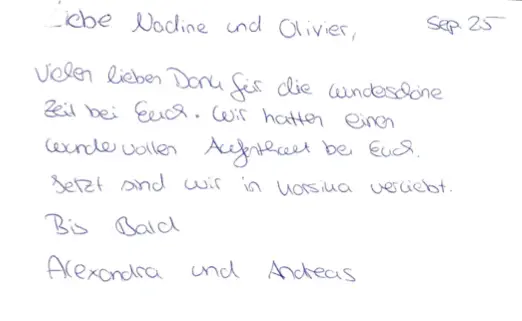 Liebe Nadine und Olivier, Sep. 25
Vielen lieben Dank für die wunderschöne
Zeit bei Euch. Wir hatten einen
wundervollen Aufenthalt bei Euch.
Jetzt sind wir in Korsika verliebt.
Bis Bald
Alexandra und Andreas